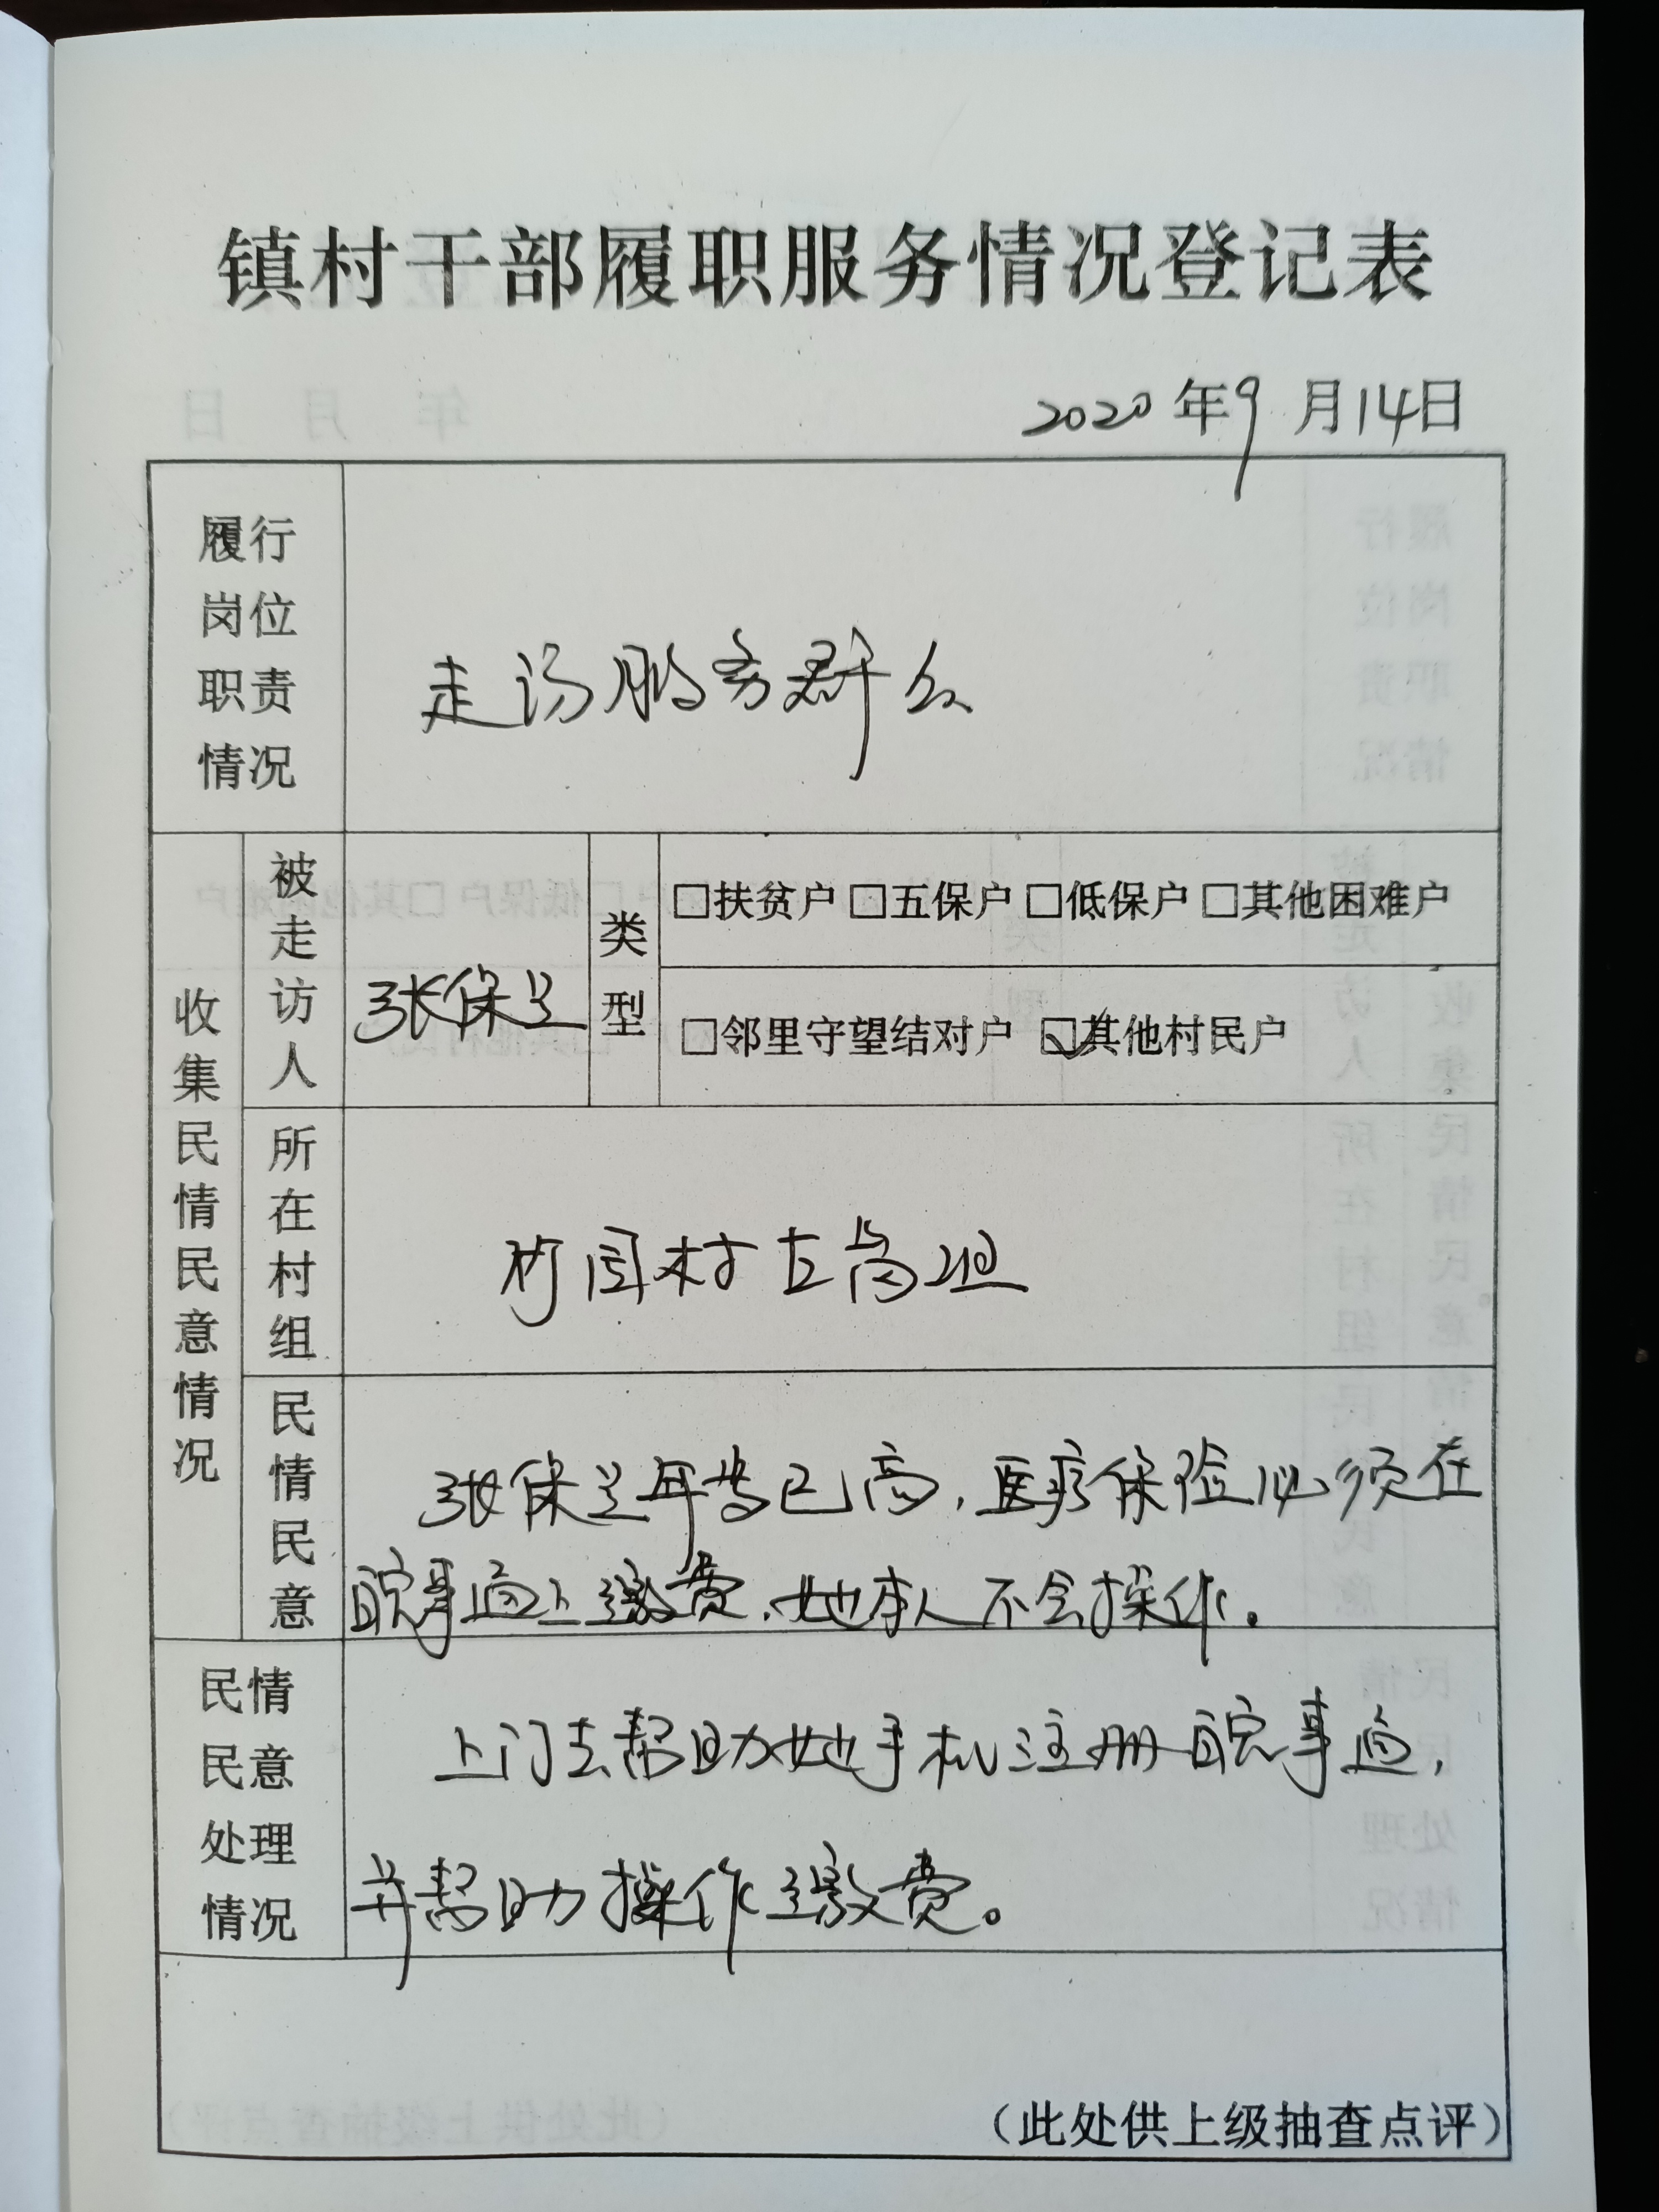 镇村干部履职服务情况登记表
2020年9月14日
履行
岗位
职责
情况
走访服务群众
收集民情民意情况
被走访人
张保兰
类型
□扶贫户 □五保户 □低保户 □其他困难户
□邻里守望结对户 ☑其他村民户
所在村组
竹园村古岗组
民情民意
张保兰年岁已高,医疗保险必须在
皖事通上缴费,她本人不会操作。
民情
民意
处理
情况
上门去帮助她手机注册皖事通,
并帮助操作缴费。
(此处供上级抽查点评)